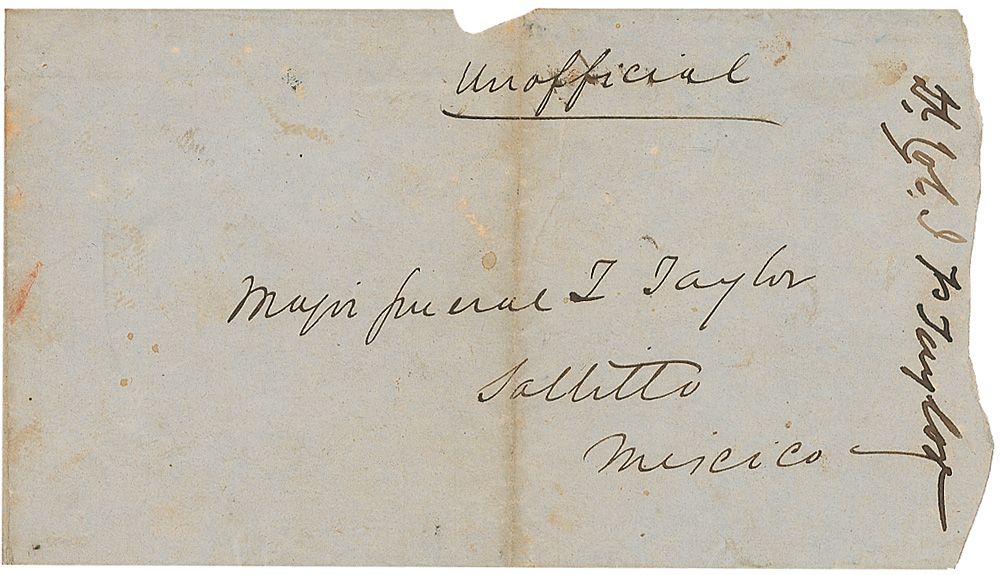 Unofficial
Major General Z Taylor
Saltitto
Mexcico
Lt. Col. J P Taylor